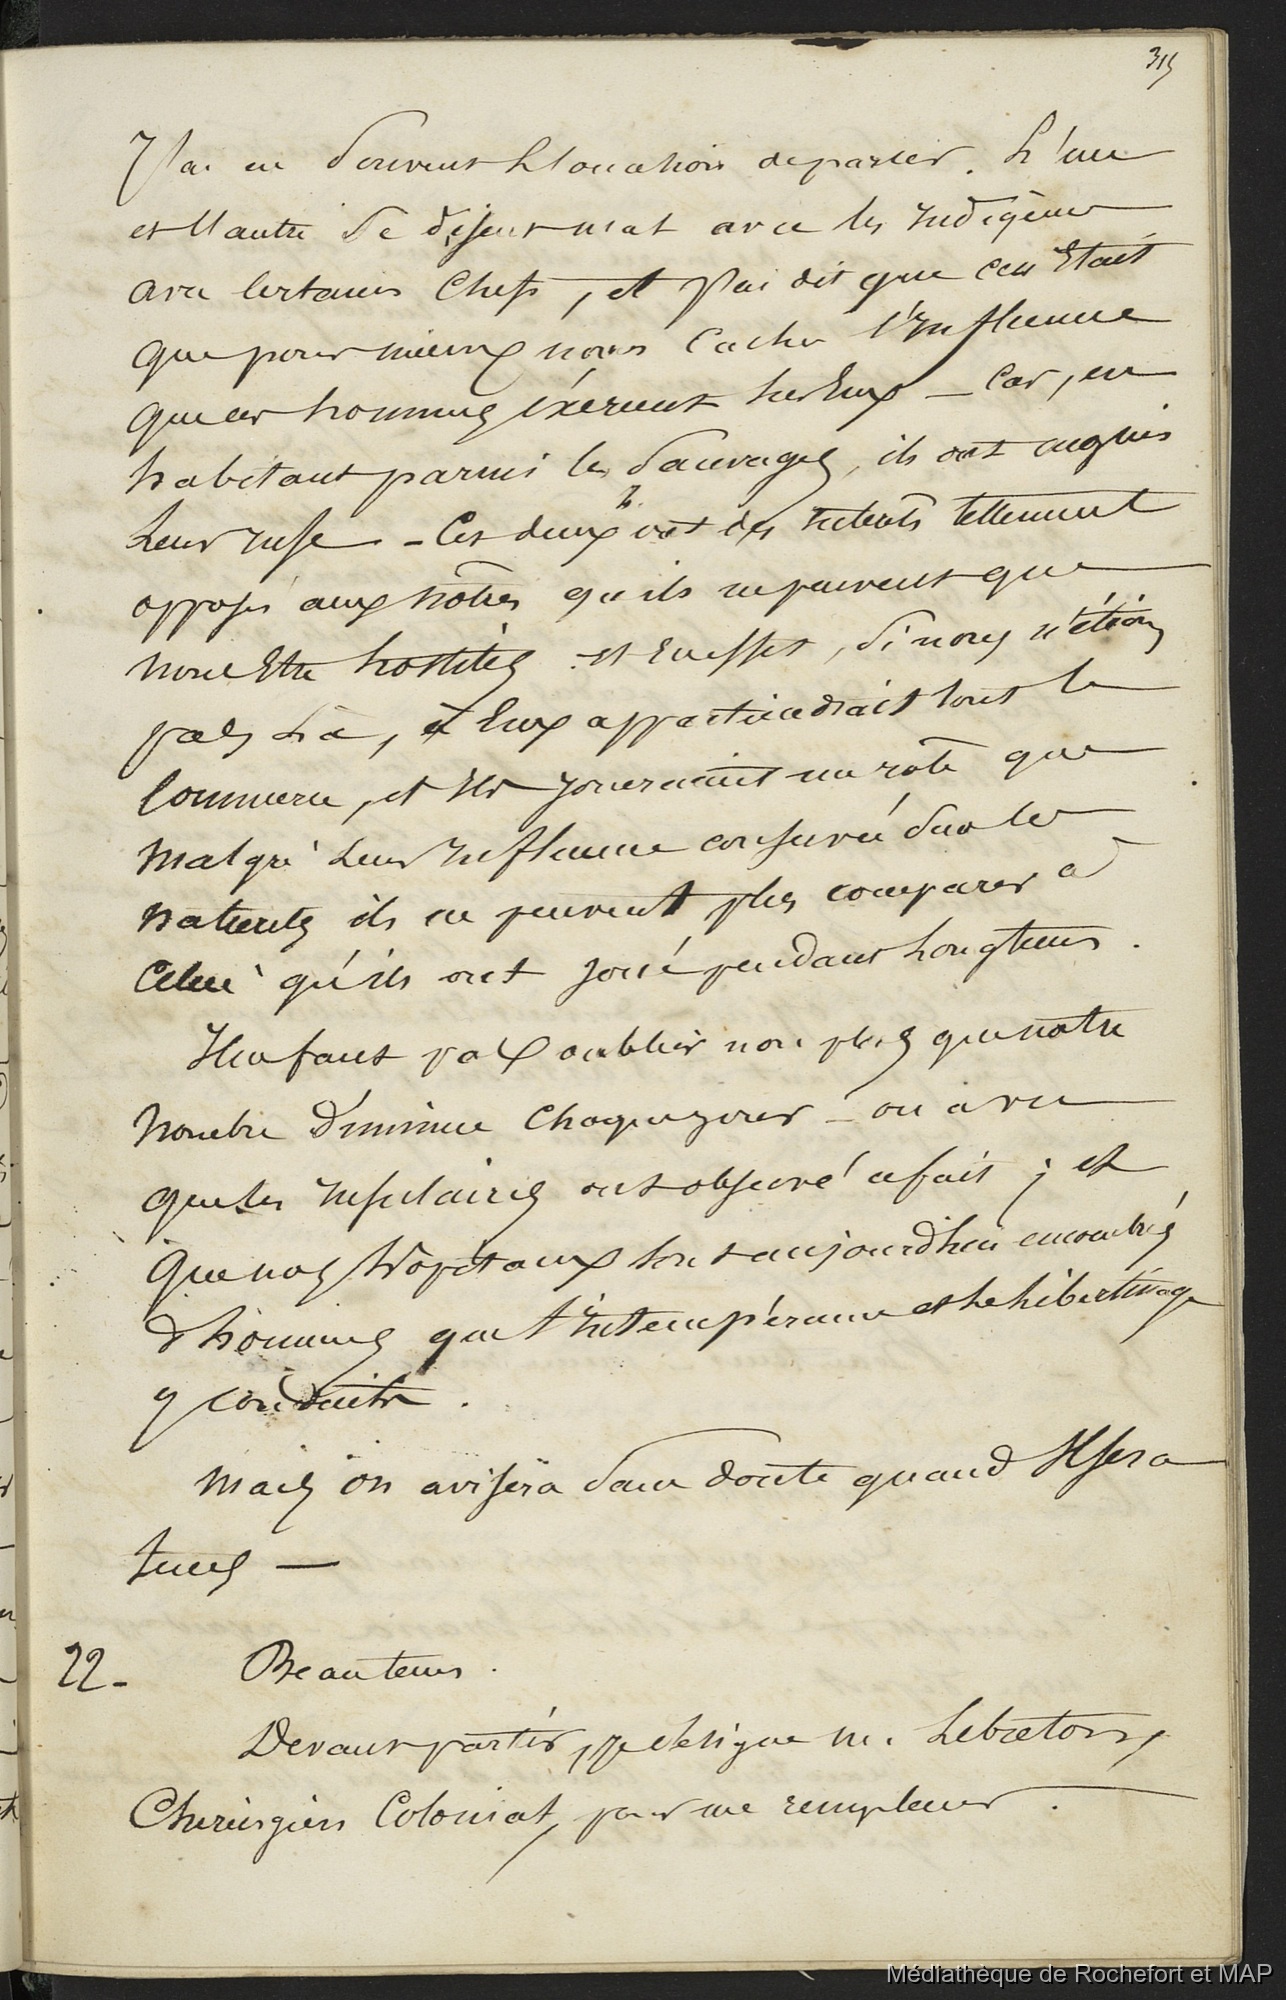 315
J'ai eu souvent l'occasion de parler. L'un
et l'autre se disent mal avec les Indigènes
avec certains Chefs, et j'ai dit que ce n'était
que pour mieux nous cacher l'Influence
que ces hommes exercent sur Eux — Car, en
habitant parmi les Sauvages, ils ont acquis
leur ruse — Ces deux ont des Intérêts tellement
opposés aux nôtres qu'ils ne peuvent que
nous Etre hostiles. et En effet, si nous n'étions
pas là, à Eux appartiendrait tout le
Commerce, et Ils joueraient un rôle que
malgré leur Influence conservée sur les
naturels ils ne peuvent plus comparer à
Celui qu'ils ont joué pendant longtems.
Il ne faut pas oublier non plus que notre
nombre diminue chaque jour — on a vu
que les Insulaires ont observé ce fait ; et
que nos hôpitaux sont aujourd'hui encombrés
d'hommes que l'Intempérance et le libertinage
y conduite.
Mais on avisera sans doute quand Il sera
tems —
22 - Beau tems.
Devant partir, je désigne M. Lebreton,
Chirurgien Colonial, pour me remplacer.
Médiathèque de Rochefort et MAP